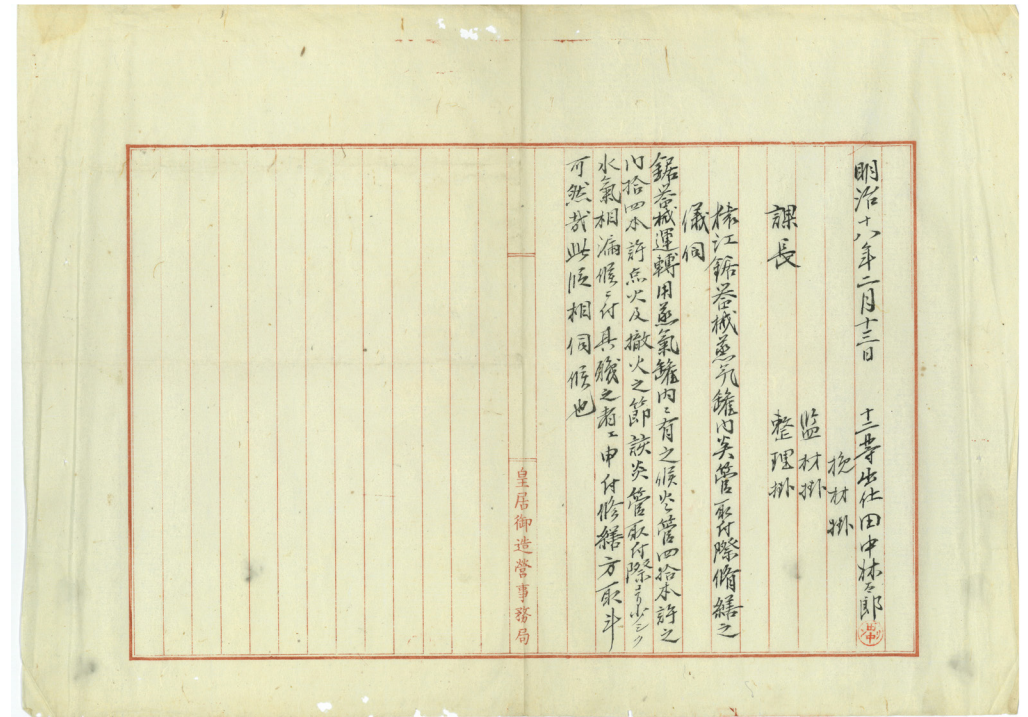 明治十八年二月十三日 十二等出仕田中林太郎
挽材掛
監材掛
課長 整理掛
猿江鋸器械蒸气罐内炎管取付際脩繕之
儀伺
鋸器械運轉用蒸氣罐内ニ有之候火管四拾本許之
内拾四本許点火及撤火之節該炎管取付際ヨリ少シク
水氣相漏候ニ付其職之者ニ申付修繕方取斗
可然哉此段相伺候也
皇居御造營事務局